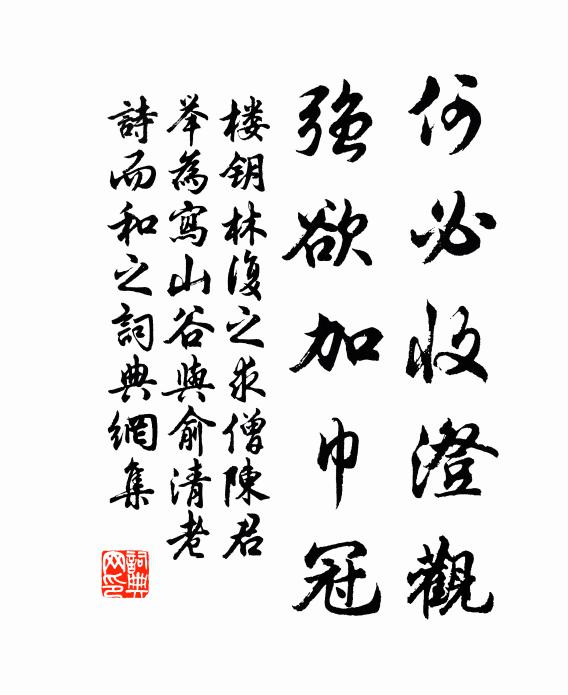 何必收澄觀
強欲加巾冠
楼钥林復之求僧陳君
举為寫山谷與俞清老
詩而和之詞典網集
詞典
网印